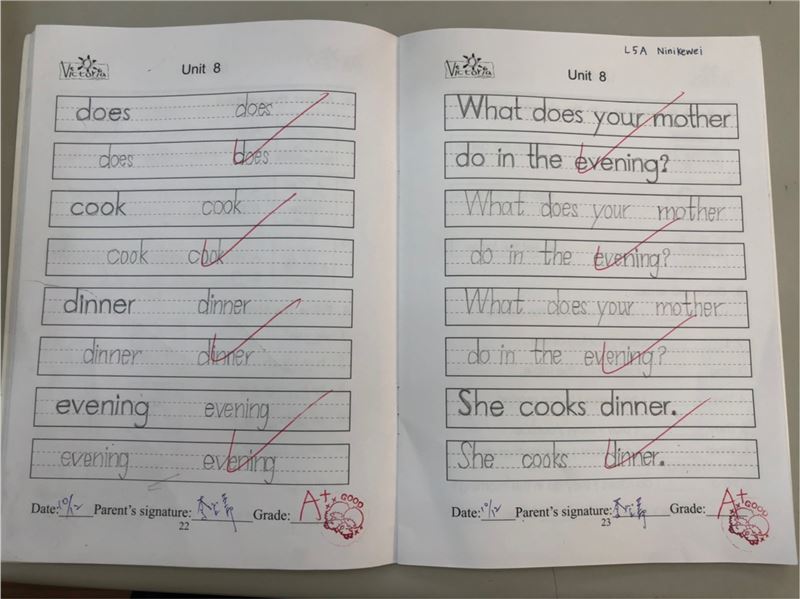 Victoria
Unit 8
does does
does does
cook cook
cook cook
dinner dinner
dinner dinner
evening evening
evening evening
Date: 10/12 Parent's signature: Grade: A+ GOOD
22
L5A Ninikewei
Victoria
Unit 8
What does your mother
do in the evening?
What does your mother
do in the evening?
What does your mother
do in the evening?
She cooks dinner.
She cooks dinner.
Date: 10/12 Parent's signature: Grade: A+ GOOD
23